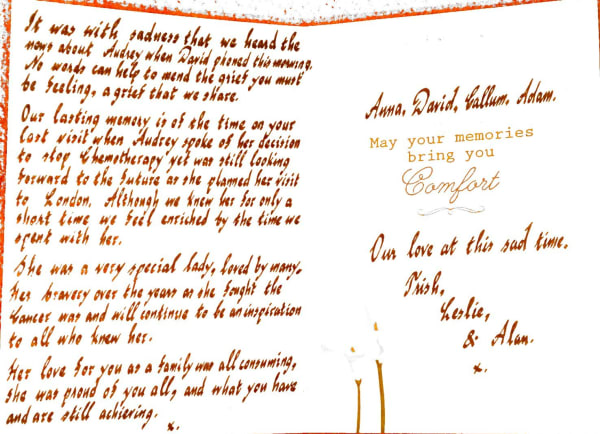 It was with sadness that we heard the
news about Audrey when David phoned this morning.
No words can help to mend the grief you must
be feeling, a grief that we share.
Our lasting memory is of the time on your
last visit when Audrey spoke of her decision
to stop Chemotherapy yet was still looking
forward to the future as she planned her visit
to London. Although we knew her for only a
short time we feel enriched by the time we
spent with her.
She was a very special lady, loved by many.
Her bravery over the years as she fought the
Cancer was and will continue to be an inspiration
to all who knew her.
Her love for you as a family was all consuming,
she was proud of you all, and what you have
and are still achieving.
x.
Anna, David, Callum, Adam.
May your memories
bring you
Comfort
Our love at this sad time.
Trish,
Leslie,
& Alan.
x.